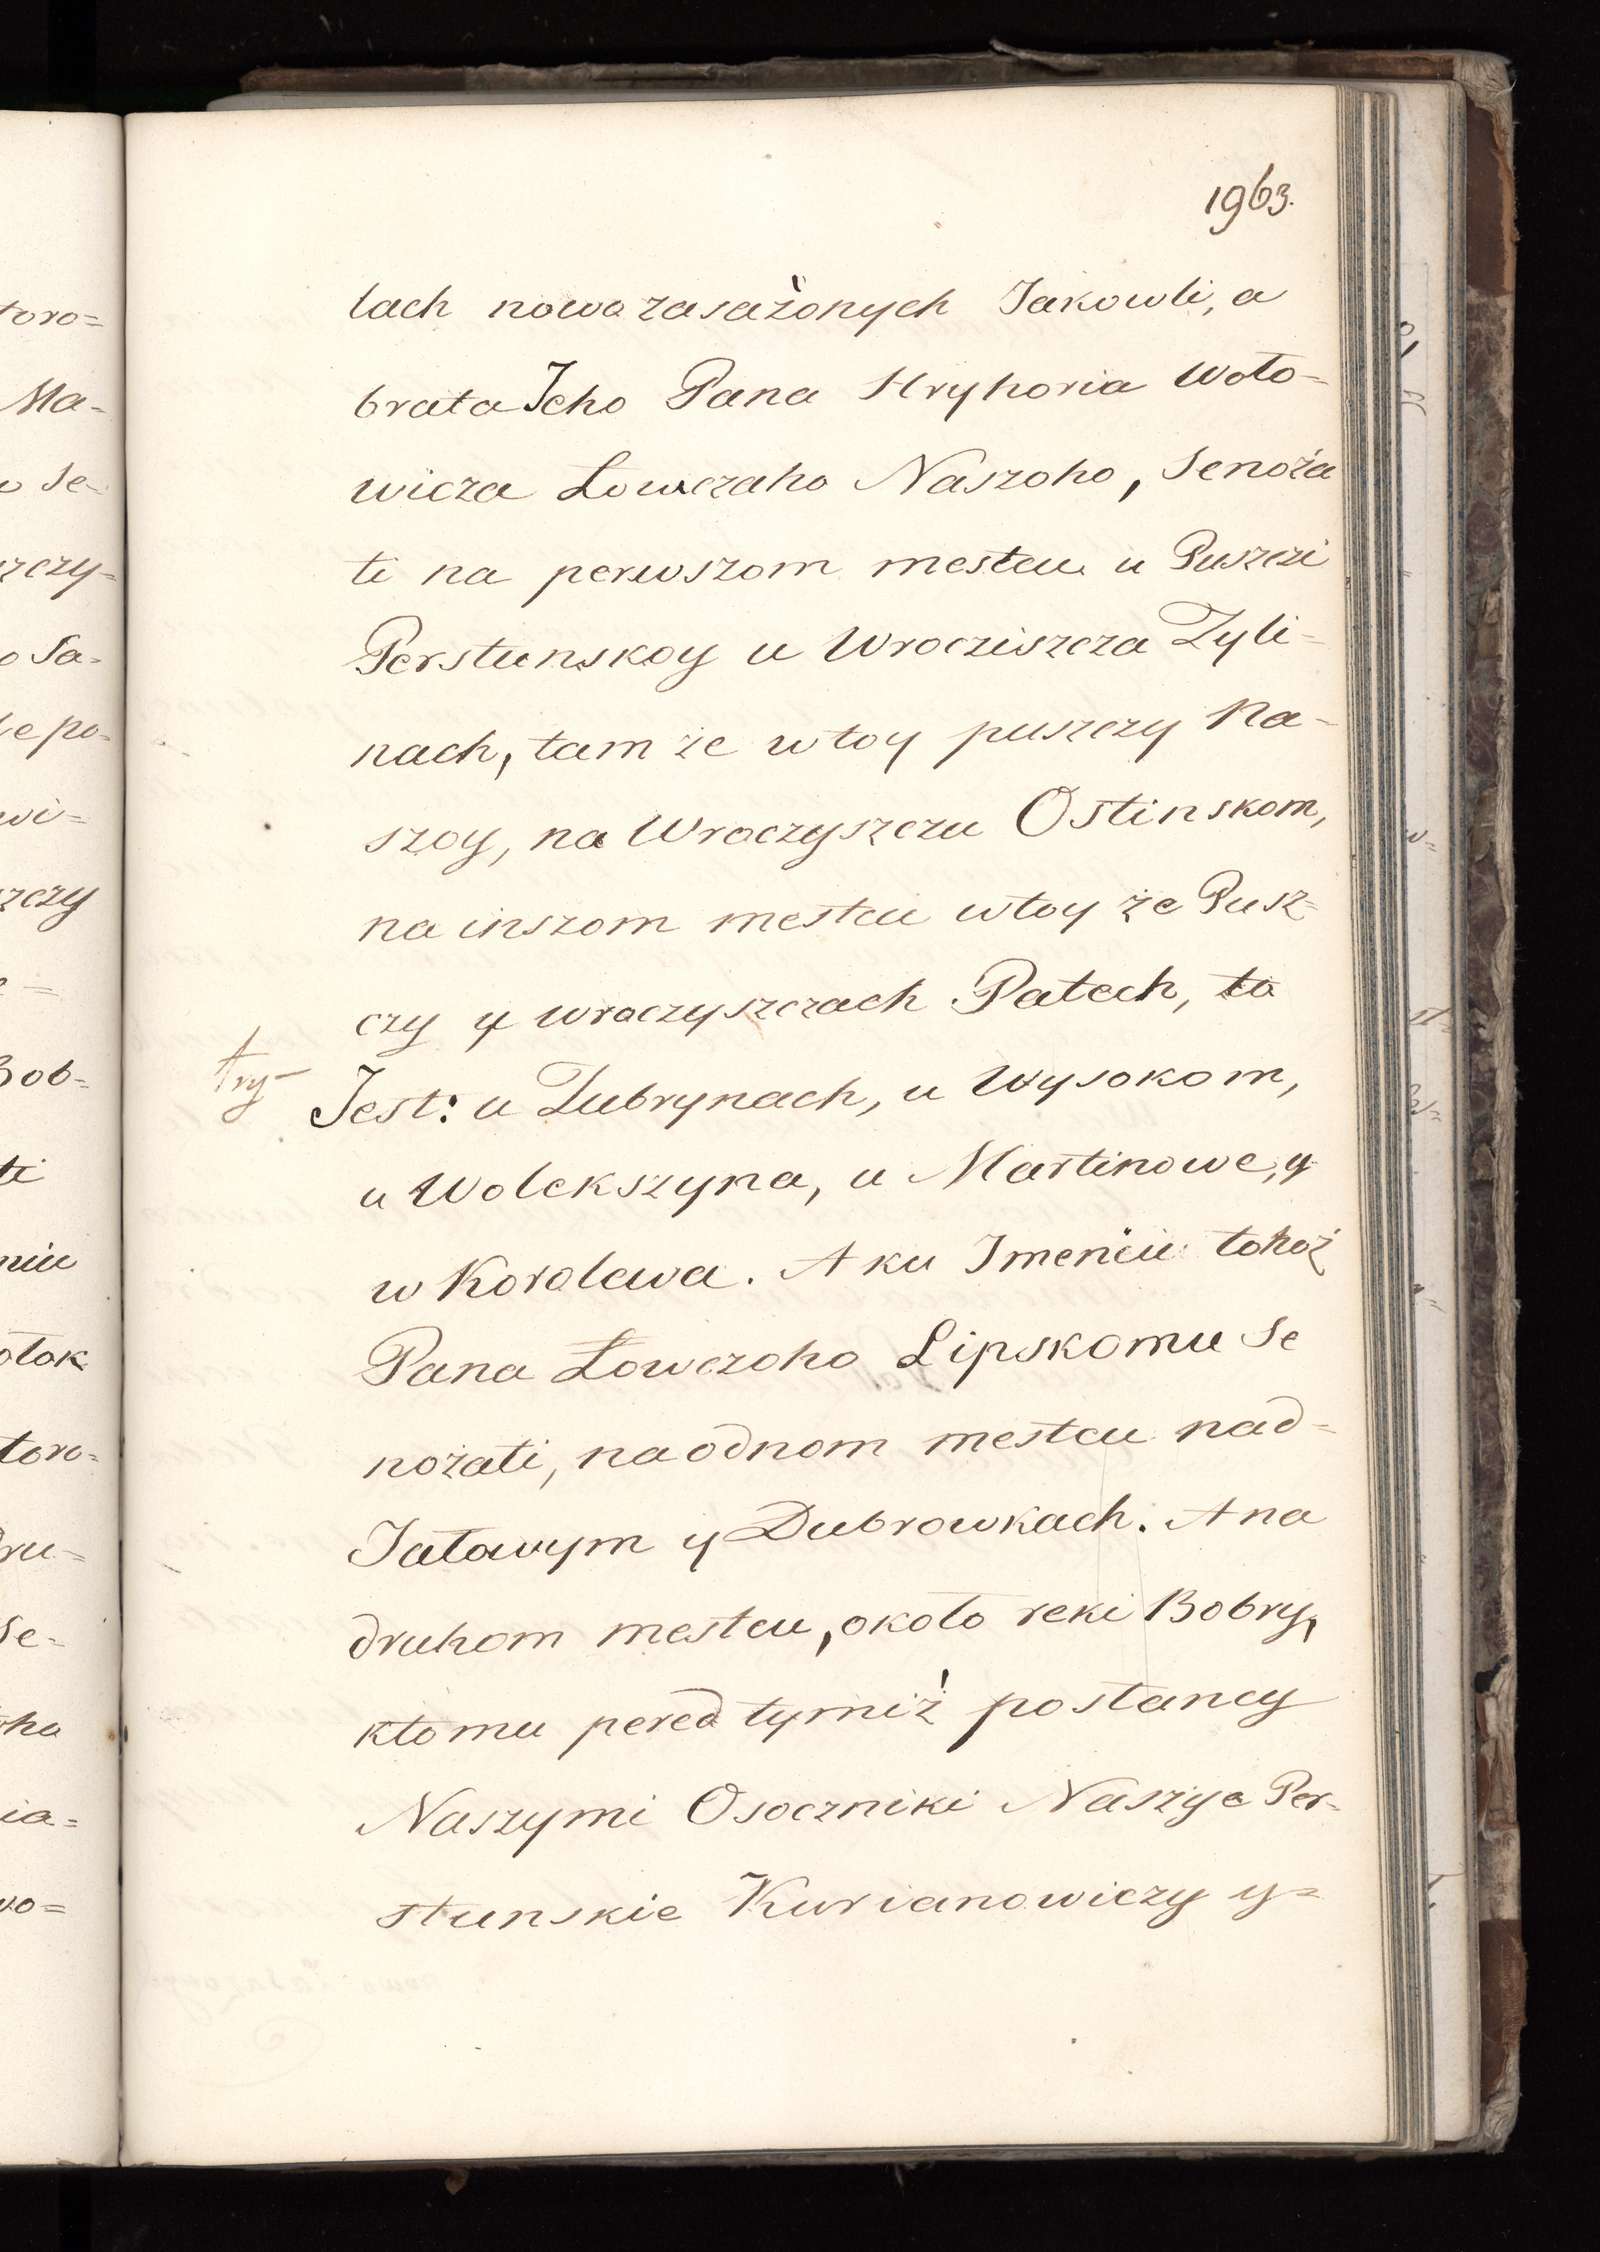 1963.
lach nowo zasażonych Jakowli, a
brata Jeho Pana Hryhoria Woło-
wicza Łowczaho Naszoho, Senoża
ti na perwszom mestcu u Puszczi
Perstunskoy u Wrocziszcza Żyli-
nach, tam że w toy puszczy Na-
szoy, na Wroczyszczu Ostinskom,
na inszom mestcu w toy że Pusz-
czy y wroczyszczach Patech, to
try
Jest: u Zubrynach, u Wysokom,
u Wolekszyna, u Martinowe, y
w Korolewa. A ku Imeniu tohoż
Pana Łowczoho Lipskomu Se
nożati, na odnom mestcu nad-
Jałowym y Dubrowkach. A na
druhom mestcu, około reki Bobry,
ktomu pered tymiż posłancy
Naszymi Osoczniki Naszye Per-
stunskie Kurianowiczy y-
toro=
Ma-
se-
zczy-
Sa-
po-
wi=
zczy
Bob-
ti
niu
otok
toro-
dru-
Se-
ho
ia=
wo=